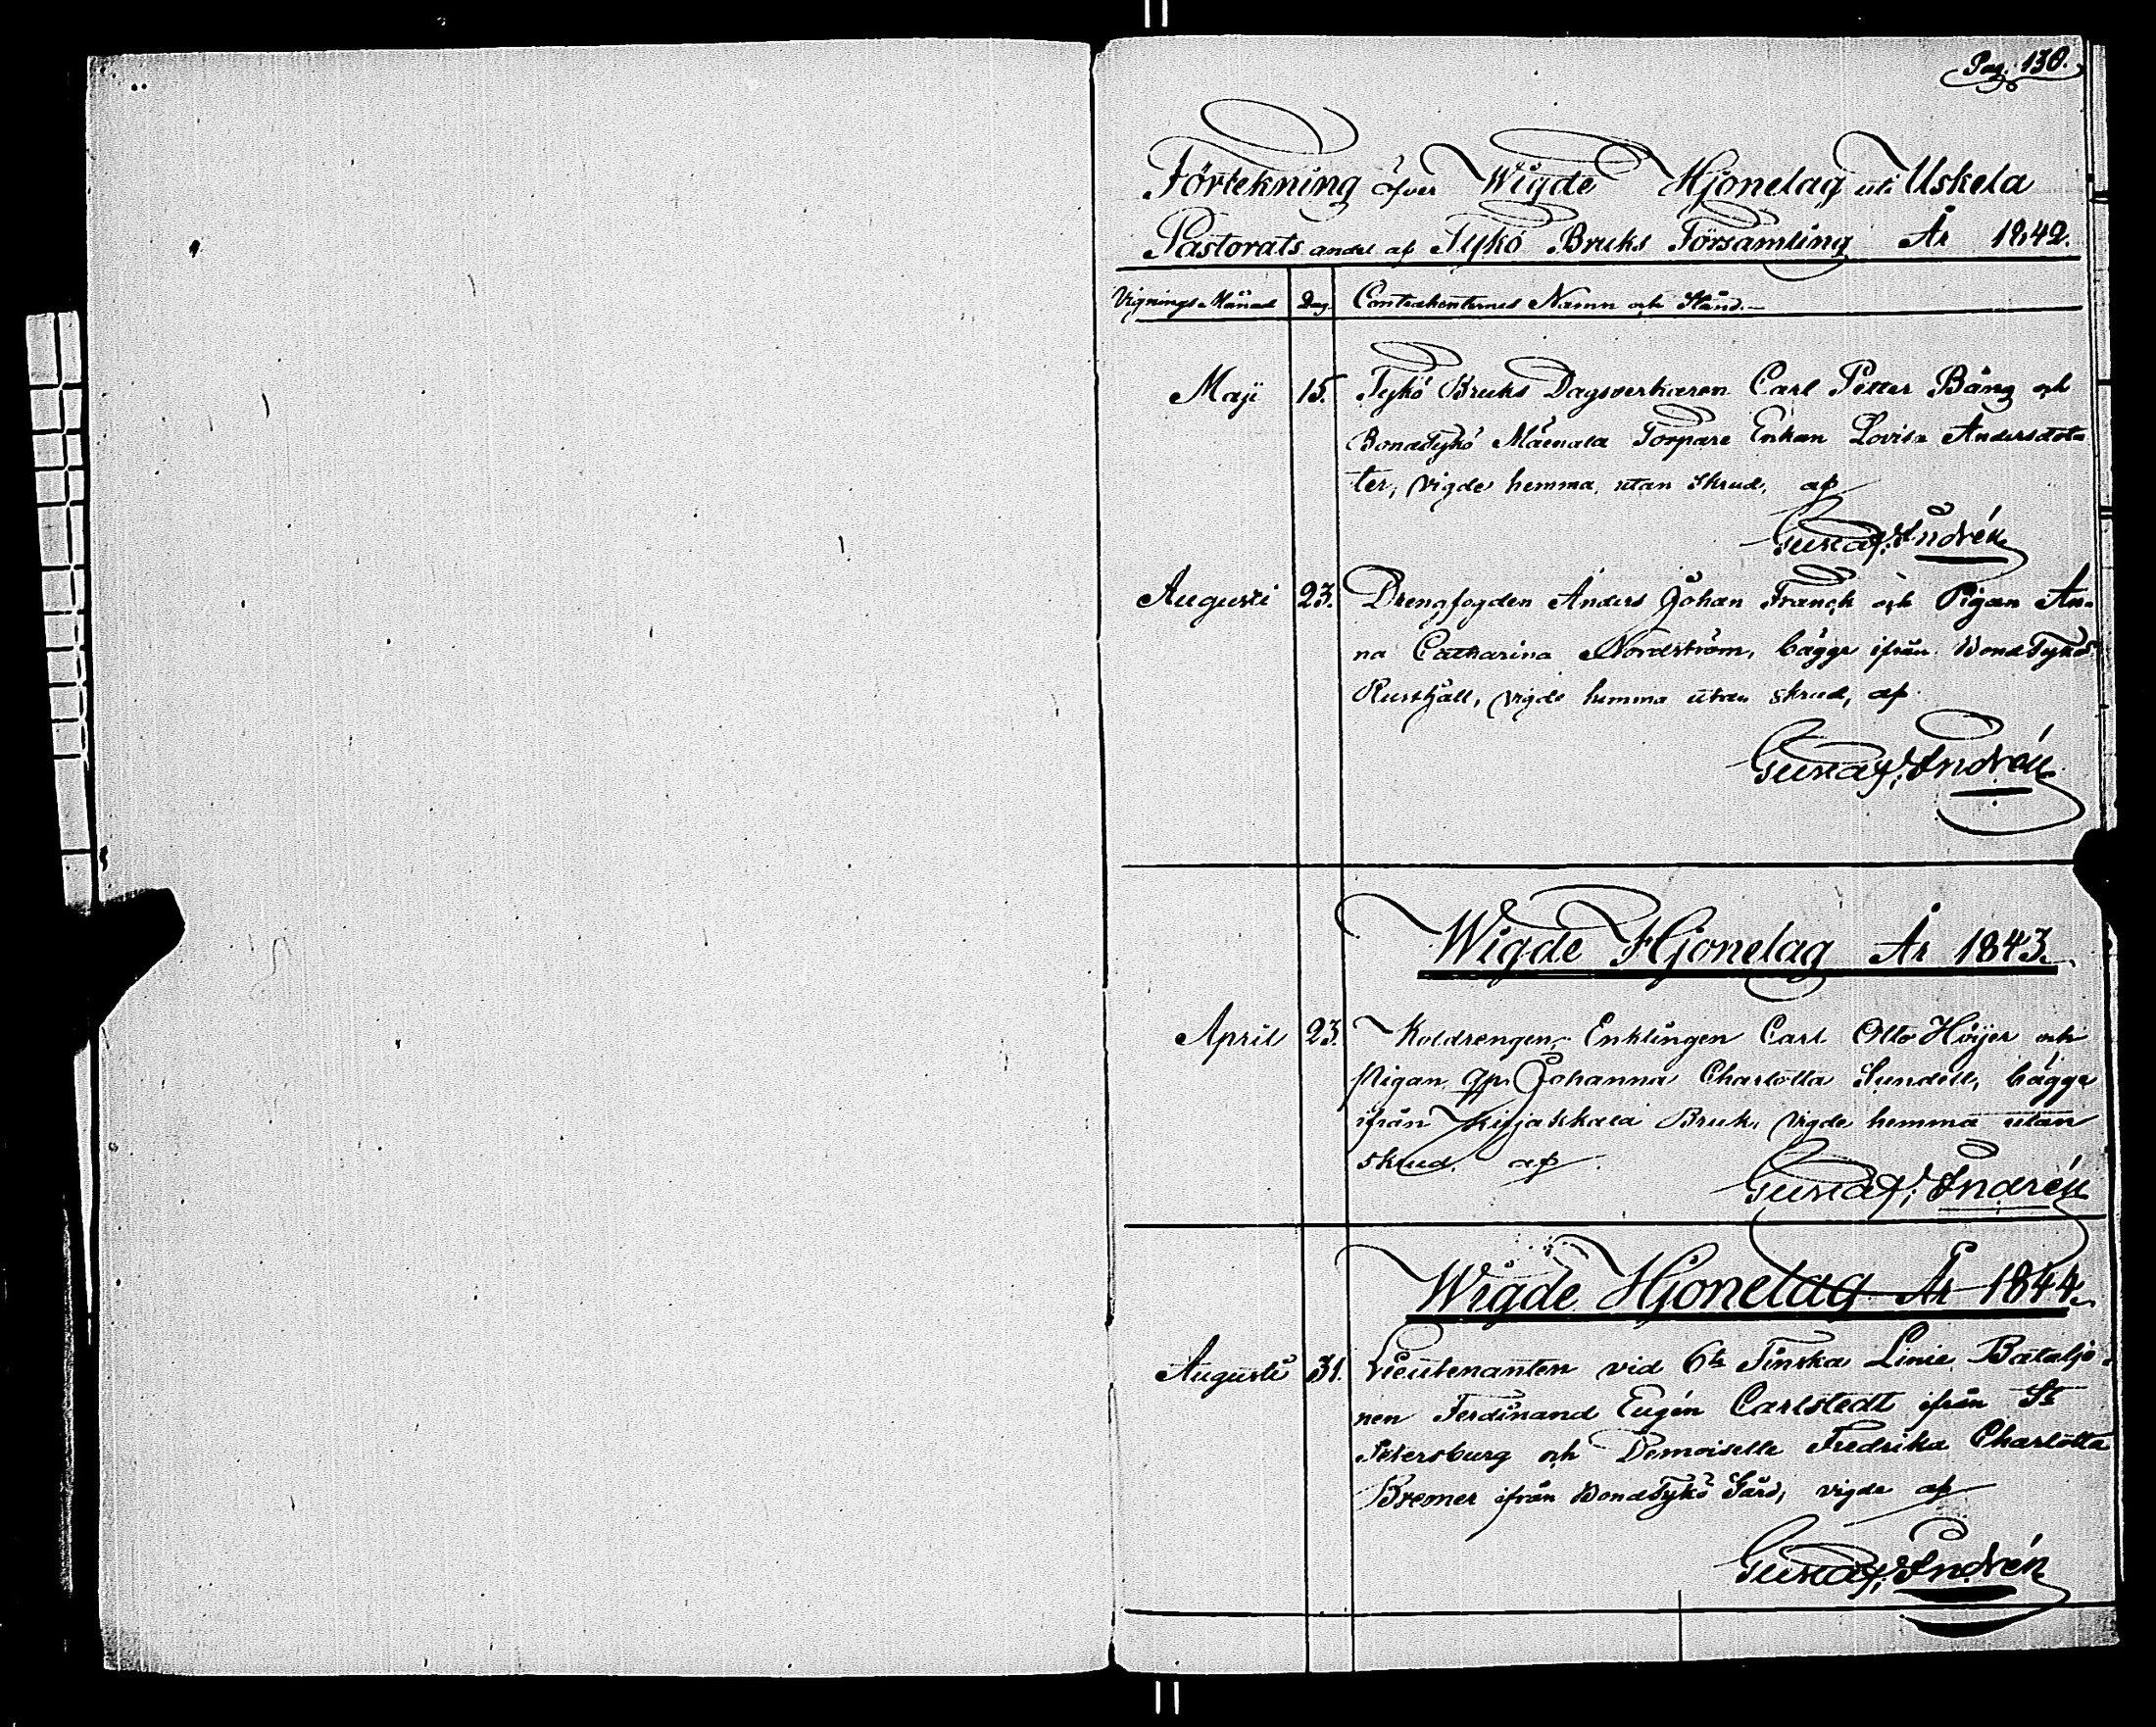 Pag. 130.
Förtekning öfver Wigde Hjonelag uti Uskela
Pastorats andel af Tykö Bruks Församling År 1842.
Vignings-Månad Dag. Contrahenternes Namn och Stånd.-
Maji 15. Tykö Bruks Dagsverkaren Carl Petter Bäng och
BondTykö Torpare Enkan Lovisa Andersdot-
ter, vigde hemma utan skrud, af
Gustaf Andrén
Augusti 23. Drengfogden Anders Johan Franck och Pigan An-
na Catharina Nordström, bägge ifrån BondTykö
Rusthåll, vigde hemma utan skrud, af
Gustaf Andrén
Wigde Hjonelag År 1843.
April 23. Koldrengen, Enklingen Carl Otto Höijer och
Pigan, Johanna Charlotta Sundell, bägge
ifrån Kirjakkala Bruk, vigde hemma utan
skrud, af
Gustaf Andrén
Wigde Hjonelag År 1844.
Augusti 31. Lieutenanten vid 6te Finska Linie Bataljo-
nen Ferdinand Eugén Carlstedt ifrån St
Petersburg och Demoiselle Fredrika Charlotta
Bremer ifrån BondTykö Gård, vigde af
Gustaf Andrén